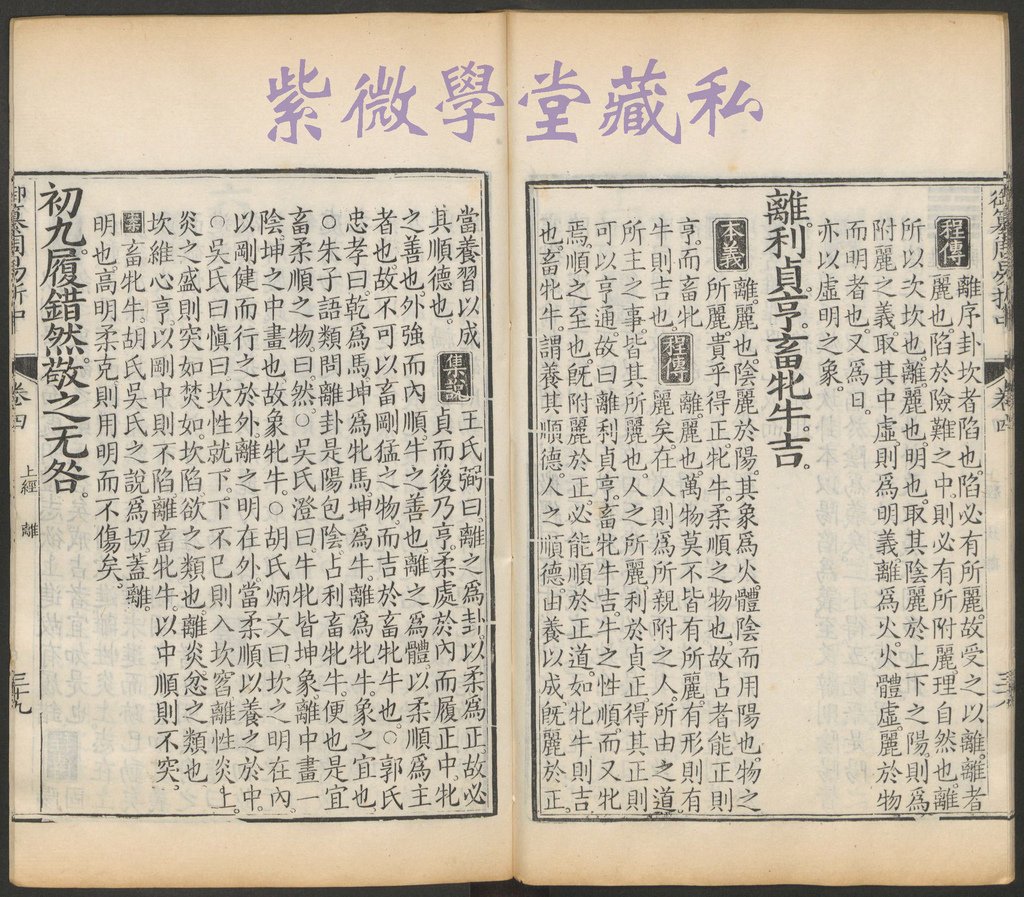 紫微學堂藏私
御纂周易折中 卷四
程傳 離序卦坎者陷也陷必有所麗故受之以離離者
麗也陷於險難之中則必有所附麗理自然也離
所以次坎也離麗也明也取其陰麗於上下之陽則爲
附麗之義取其中虛則爲明義離爲火火體虛麗於物
而明者也又爲日
亦以虛明之象
離利貞亨畜牝牛吉
本義 離麗也陰麗於陽其象爲火體陰而用陽也物之
所麗貴乎得正牝牛柔順之物也故占者能正則
亨而畜牝
牛則吉也 程傳 離麗也萬物莫不皆有所麗有形則有
麗矣在人則爲所親附之人所由之道
所主之事皆其所麗也人之所麗利於貞正得其正則
可以亨通故曰離利貞亨畜牝牛吉牛之性順而又牝
焉順之至也旣附麗於正必能順於正道如牝牛則吉
也畜牝牛謂養其順德人之順德由養以成旣麗於正
當養習以成
其順德也 集說 王氏弼曰離之爲卦以柔爲正故必
貞而後乃亨柔處於內而履正中牝
之善也外強而內順牛之善也離之爲體以柔順爲主
者也故不可以畜剛猛之物而吉於畜牝牛也○郭氏
忠孝曰乾爲馬坤爲牝馬坤爲牛離爲牝牛象之宜也
○朱子語類問離卦是陽包陰占利畜牝牛便也是宜
畜柔順之物曰然○吳氏澄曰牛牝皆坤象離中畫一
陰坤之中畫也故象牝牛○胡氏炳文曰坎之明在內
以剛健而行之於外離之明在外當柔順以養之於中
○吳氏曰愼曰坎性就下下不已則入坎窞離性炎上
炎之盛則突如焚如坎陷欲之類也離炎忿之類也
坎維心亨以剛中則不陷離畜牝牛以中順則不突
案 畜牝牛胡氏吳氏之說爲切蓋離
明也高明柔克則用明而不傷矣
初九履錯然敬之无咎
御纂周易折中 卷四 上經 離 三十九